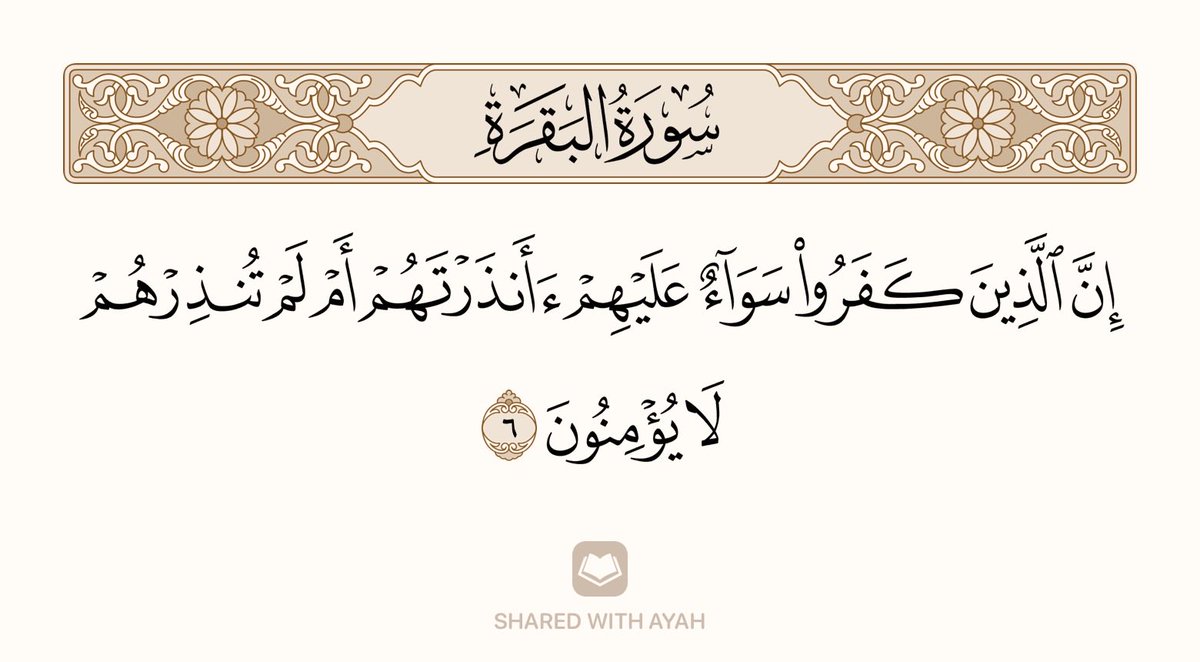 سُورَةُ البَقَرَةِ
إِنَّ ٱلَّذِينَ كَفَرُوا۟ سَوَآءٌ عَلَيْهِمْ ءَأَنذَرْتَهُمْ أَمْ لَمْ تُنذِرْهُمْ
لَا يُؤْمِنُونَ ٦
SHARED WITH AYAH